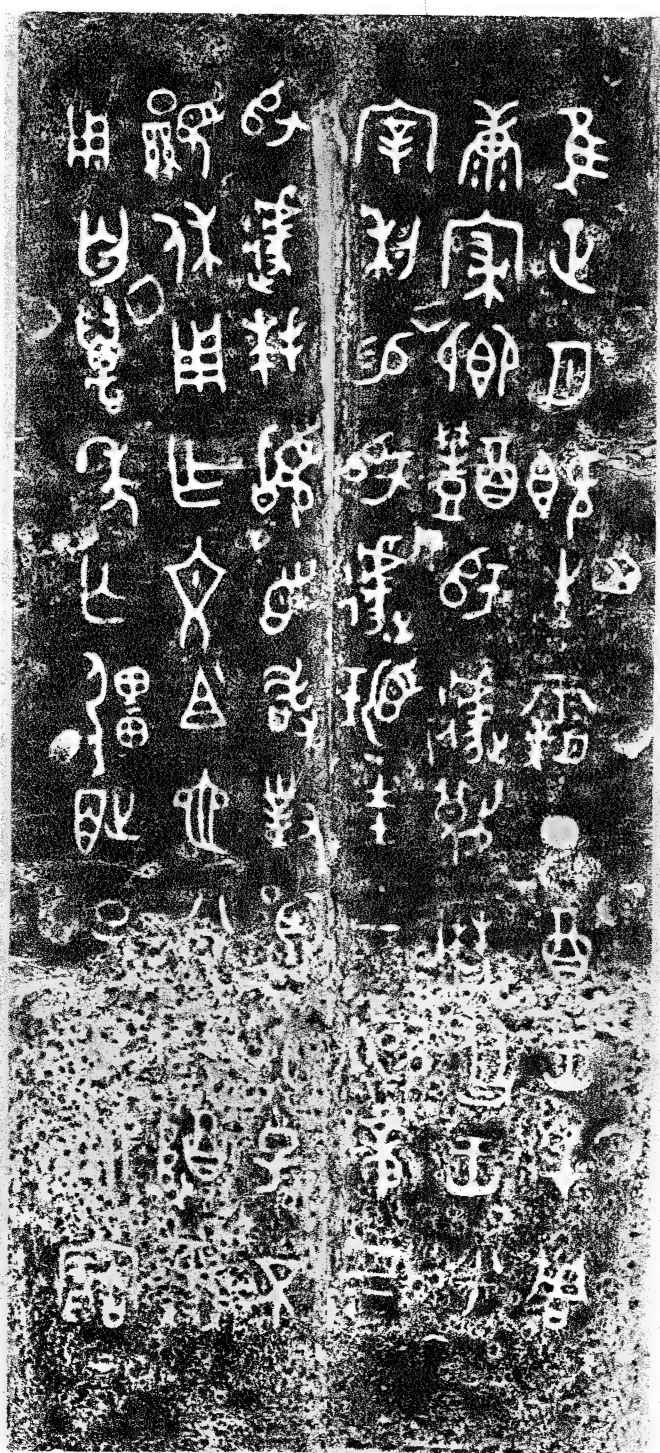 隹正月既生霸丁酉王才周
康𡩠鄉醴師遽蔑𤯍𠭯王乎
宰利易師遽𤪌圭一瑗章四
師遽拜𩒨首敢對揚天子不
顯休用乍文且它公寶尊彝
用匄萬年亡彊百世孫子永寶